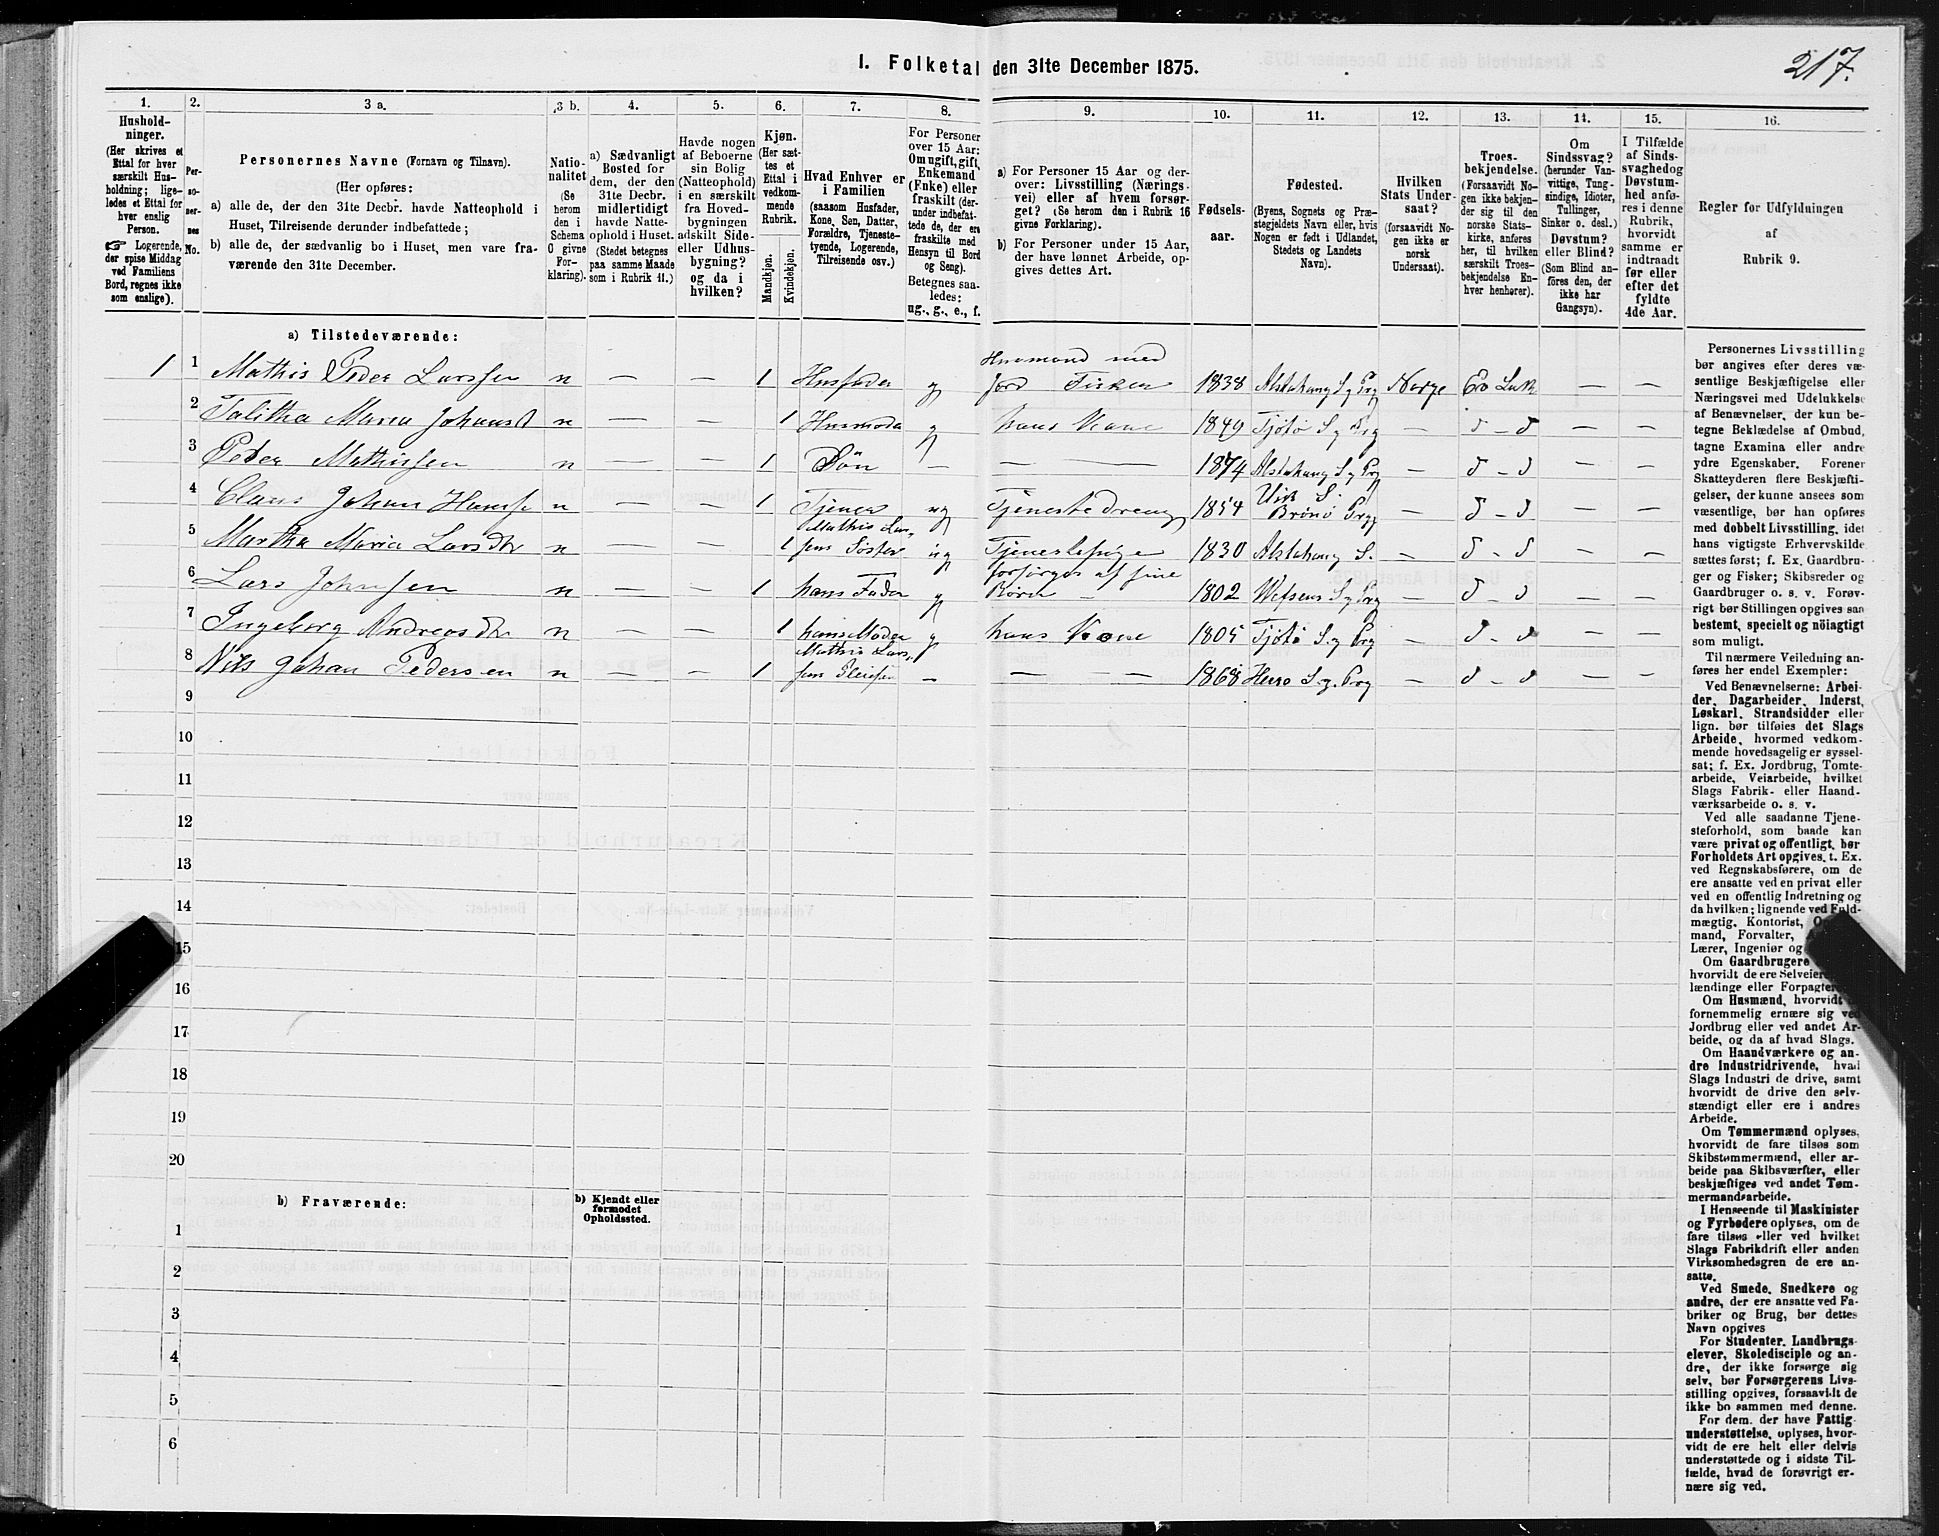 217.
1. Folketal den 31te December 1875.
1. 2. 3 a. 3 b. 4. 5. 6. 7. 8. 9. 10. 11. 12. 13. 14. 15. 16.
Hushold-
ninger.
(Her skrives et
Ettal for hver
særskilt Hus-
holdning; lige-
ledes et Ettal for
hver enslig
Person.
☞ Logerende,
der spise Middag
ved Familiens
Bord, regnes ikke
som enslige).
Per-
so-
ner-
nes
No.
Personernes Navne (Fornavn og Tilnavn).
(Her opføres:
a) alle de, der den 31te Decbr. havde Natteophold i
Huset, Tilreisende derunder indbefattede;
b) alle de, der sædvanlig bo i Huset, men vare fra-
værende den 31te December.
Natio-
nalitet
(Se
herom
den i
Schema
O givne
For-
klaring).
a) Sædvanligt
Bosted for
dem, der den
31te Decbr.
midlertidigt
havde Natte-
ophold i Huset.
(Stedet betegnes
paa samme Maade
som i Rubrik 11.)
Havde nogen
af Beboerne
sin Bolig
(Natteophold)
i en særskilt
fra Hoved-
bygningen
adskilt Side-
eller Udhus-
bygning?
og da i
hvilken?
Kjøn.
(Her sæt-
tes et
Ettal i
vedkom-
mende
Rubrik.
Mandkjøn.
Kvindekjøn.
Hvad Enhver er
i Familien
(saasom Husfader,
Kone, Søn, Datter,
Forældre, Tjeneste-
tyende, Logerende,
Tilreisende osv.)
For Personer
over 15 Aar:
Om ugift, gift,
Enkemand
(Enke) eller
fraskilt (der-
under indbefat-
tede de, der ere
fraskilte med
Hensyn til Bord
og Seng).
Betegnes saa-
ledes:
ug., g., e., f.
a) For Personer 15 Aar og der-
over: Livsstilling (Nærings-
vei) eller af hvem forsør-
get? (Se herom den i Rubrik 16
givne Forklaring).
b) For Personer under 15 Aar,
der have lønnet Arbeide, op-
gives dettes Art.
Fødsels-
aar.
Fødested.
(Byens, Sognets og Præ-
stegjeldets Navn eller, hvis
Nogen er født i Udlandet,
Stedets og Landets
Navn).
Hvilken
Stats Under-
saat?
(forsaavidt No-
gen ikke er
norsk
Undersaat).
Troes-
bekjendelse.
(Forsaavidt No-
gen ikke bekjen-
der sig til den
norske Stats-
kirke, anføres
her, til hvilken
særskilt Troes-
bekjendelse En-
hver henhører).
Om
Sindssvag?
(herunder Van-
vittige, Tung-
sindige, Idioter,
Tullinger,
Sinker o. desl.)
Døvstum?
eller Blind?
(Som Blind an-
føres den, der
ikke har
Gangsyn).
I Tilfælde
af Sinds-
svaghed og
Døvstum-
hed anfø-
res i denne
Rubrik,
hvorvidt
samme er
indtraadt
før eller
efter det
fyldte
4de Aar.
Regler for Udfyldningen
af
Rubrik 9.
a) Tilstedeværende:
1 1 Mathis Peder Larssen n — — 1 Husfader g Husmand med Jord Fisker 1838 Alstahaug S. g Prg Norge Ev Luth — —
2 Talitha Maria Johansd n — — 1 Husmoder g hans Kone 1849 Tjøtø S g Prg — d - d — —
3 Peder Mathissen n — — 1 Sön — — — 1874 Alstahaug S g Prg — d - d — —
4 Claus Johan Hanse n — — 1 Tjener ug Tjenestedreng 1854 Vik S. Brönö Prg — d - d — —
5 Martha Maria Larsdtr n — — 1 Mathis Lars,, sens Söster ug Tjenestepige 1830 Alstahaug S. — d - d — —
6 Lars Johnsen n — — 1 hans Fader g forsörges af sine Börn — 1802 Wefsens S g Prg — d - d — —
7 Ingeborg Andreasdtr n — — 1 hans Moder g hans Kone 1805 Tjøtø S. g Prg — d - d — —
8 Nils Johan Pedersen n — — 1 Mathis Lars,, sens Pleiesøn — — — 1868 Herrø S. g. Prg — d - d — —
9
10
11
12
13
14
15
16
17
18
19
20
b) Fraværende:
b) Kjendt eller
formodet
Opholdssted.
1
2
3
4
5
6
Personernes Livsstilling
bør angives efter deres væ-
sentlige Beskjæftigelse eller
Næringsvei med Udelukkelse
af Benævnelser, der kun be-
tegne Beklædelse af Ombud,
tagne Examina eller andre
ydre Egenskaber. Forener
Skatteyderen flere Beskjæfti-
gelser, der kunne ansees som
væsentlige, bør han opføres
med dobbelt Livsstilling, idet
hans vigtigste Erhvervskilde
sættes først; f. Ex. Gaardbru-
ger og Fisker; Skibsreder og
Gaardbruger o. s. v. Forøv-
rigt bør Stillingen opgives saa
bestemt, specielt og nöiagtigt
som muligt.
Til nærmere Veiledning an-
føres her endel Exempler:
Ved Benævnelserne: Arbei-
der, Dagarbeider, Inderst,
Løskarl, Strandsidder eller
lign. bør tilføies det Slags
Arbeide, hvormed vedkom-
mende hovedsagelig er syssel-
sat; f. Ex. Jordbrug, Tomte-
arbeide, Veiarbeide, hvilket
Slags Fabrik- eller Haand-
værksarbeide o. s. v.
Ved alle saadanne Tjene-
steforhold, som baade kan
være privat og offentligt, bør
Forholdets Art opgives, t. Ex.
ved Regnskabsførere, om de
ere ansatte ved en privat eller
ved en offentlig Indretning og
da hvilken; lignende ved Fuld-
mægtig, Kontorist,
mand, Forvalter,
Lærer, Ingeniør og
Om Gaardbrugere
hvorvidt de ere Selveiere,
lændinge eller Forpagtere.
Om Husmænd, hvorvidt
fornemmelig ernære sig ved
Jordbrug eller ved andet Ar-
beide, og da af hvad Slags.
Om Haandværkere og an-
dre Industridrivende, hvad
Slags Industri de drive, samt
hvorvidt de drive den selv-
stændigt eller ere i andres
Arbeide.
Om Tømmermænd oplyses,
hvorvidt de fare tilsøs som
Skibstømmermænd, eller ar-
beide paa Skibsværfter, eller
beskjæftiges ved andet Tøm-
mermandsarbeide.
I Henseende til Maskinister
og Fyrbødere oplyses, om de
fare tilsøs eller ved hvilket
Slags Fabrikdrift eller anden
Virksomhedsgren de ere an-
satte.
Ved Smede, Snedkere og
andre, der ere ansatte ved Fa-
briker og Brug, bør dettes
Navn opgives
For Studenter, Landbrugs-
elever, Skoledisciple og an-
dre, der ikke forsørge sig
selv, bør Forsørgerens Livs-
stilling opgives, forsaavidt de
ikke bo sammen med denne.
For dem, der have Fattig-
understøttelse, oplyses, hvor-
vidt de ere helt eller delvis
understøttede og i sidste Til-
fælde, hvad de forøvrigt er-
nære sig ved.